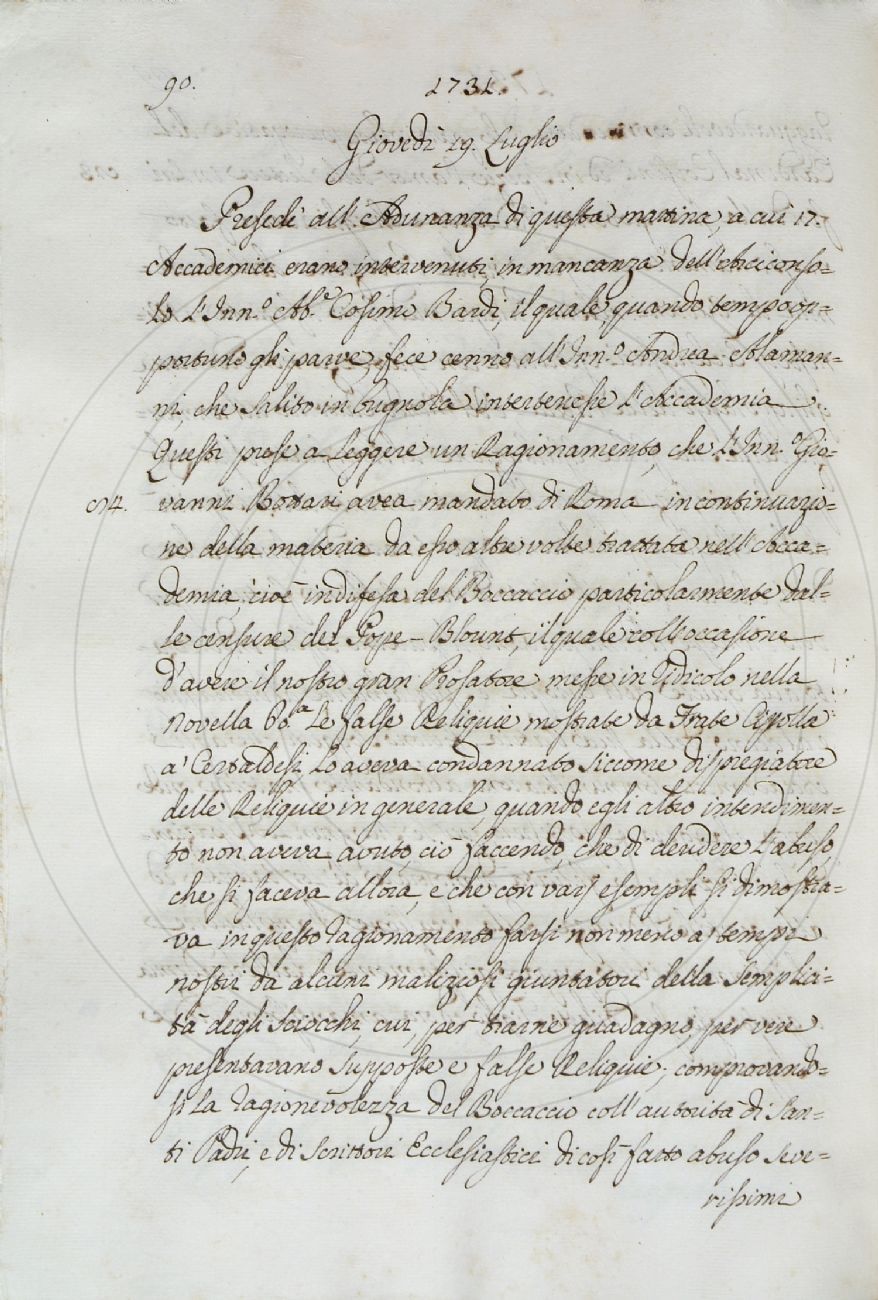 90.
1731.
Giovedì 19. Luglio
Presedè all'Adunanza di questa mattina, a cui 17.
Accademici erano intervenuti, in mancanza dell'Arciconso=
lo l'Inn.º Ab.e Cosimo Bardi, il quale, quando tempo op=
portuno gli parve, fece cenno all'Inn.º Andrea Alaman=
ni, che salito in bugnola intertenesse l'Accademia.
Questi prese a leggere un Ragionamento, che l'Inn.º Gio=
vanni Bottari avea mandato di Roma in continuazio=
ne della materia da esso altre volte trattata nell'Acca=
demia, cioè in difesa del Boccaccio particolarmente dal=
le censure del Pope-Blount, il quale coll'occasione
d'avere il nostro gran Prosatore messe in ridicolo nella
Novella 60.a le false Reliquie mostrate da Frate Cipolla
a' Certaldesi lo aveva condannato siccome dispregiatore
delle Reliquie in generale, quando egli altro intendimen=
to non aveva avuto, ciò faccendo, che di deridere l'abuso,
che si faceva allora, e che con varj esempli si dimostra=
va in questo ragionamento farsi non meno a' tempi
nostri da alcuni maliziosi giuntatori della semplici=
tà degli sciocchi, cui, per trarne guadagno, per vere
presentavano supposte e false Reliquie; comprovando=
si la ragionevolezza del Boccaccio coll'autorità di San=
ti Padri, e di Scrittori Ecclesiastici di così fatto abuso seve=
rissimi